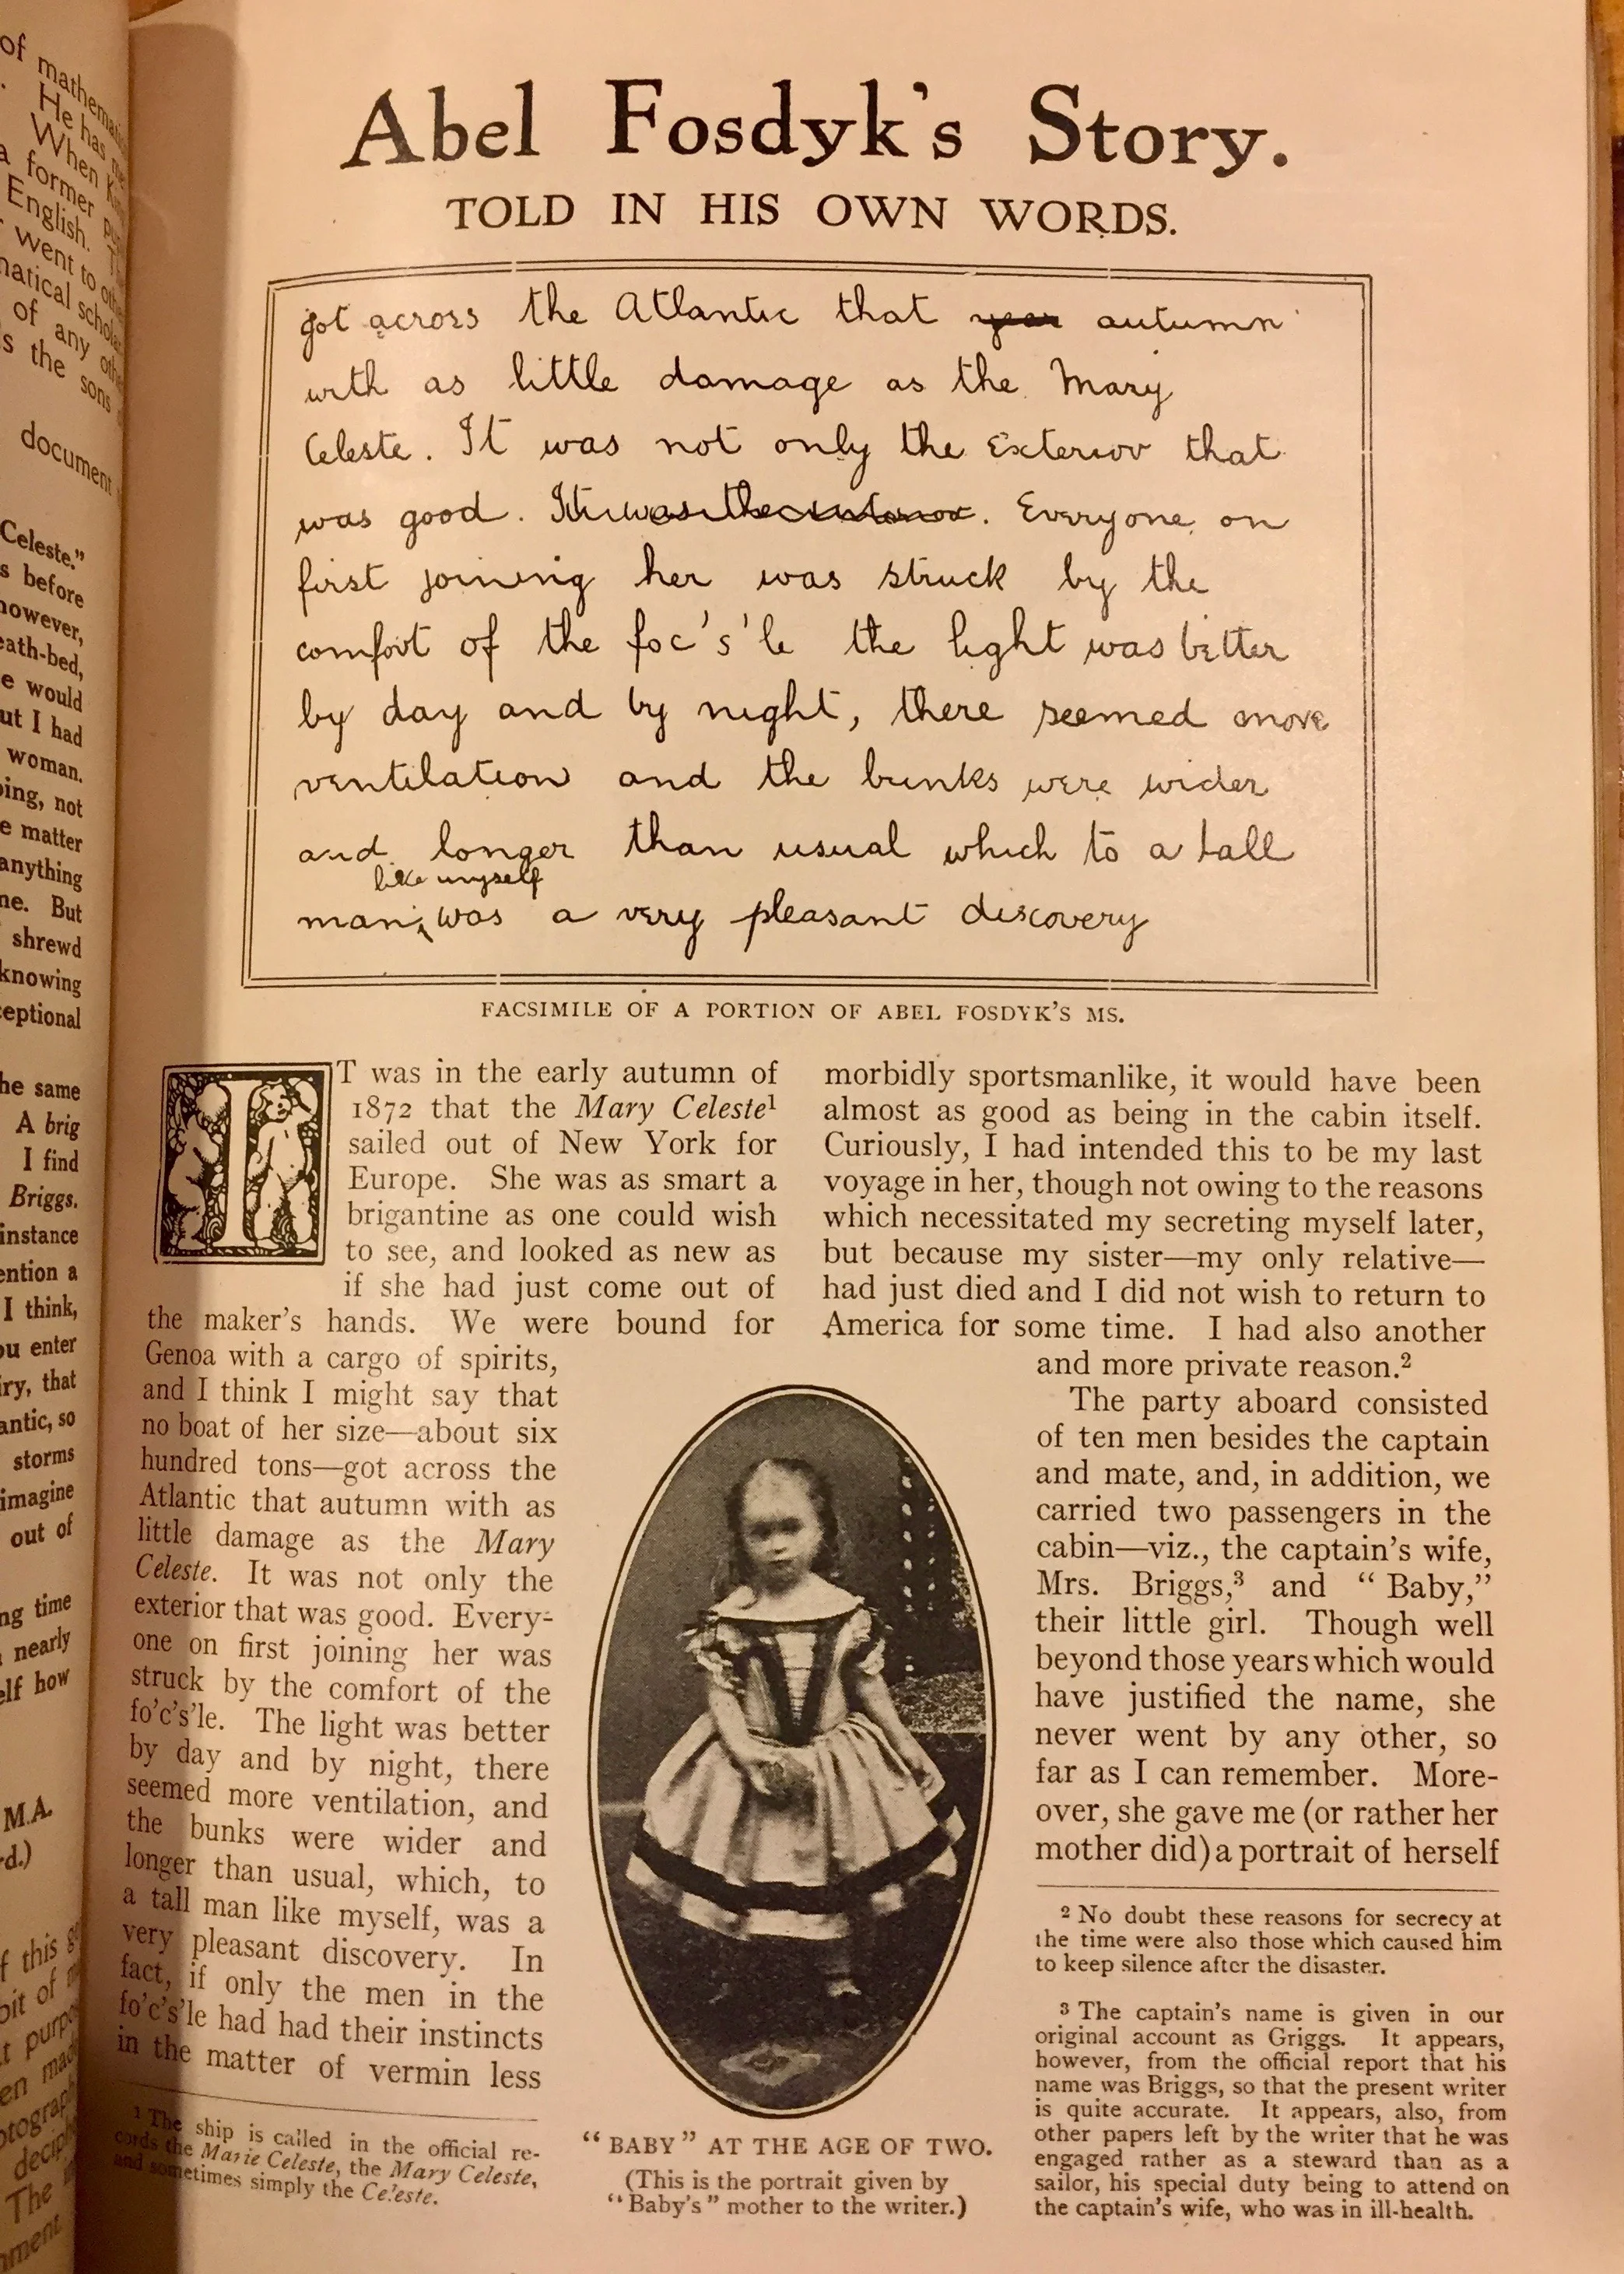 of mathemati
He has
When
a former
English.
went to
matical schol
of any
s the sons
document
Celeste."
s before
however,
eath-bed,
e would
ut I had
woman.
ping, not
e matter
anything
ne. But
shrewd
knowing
ceptional
he same
A brig
I find
Briggs.
instance
ention a
I think,
ou enter
iry, that
antic, so
storms
imagine
out of
ng time
nearly
elf how
M.A.
rd.)
f this
bit of
t purpo
en mad
otograph
deciph
The
nment
Abel Fosdyk's Story.
TOLD IN HIS OWN WORDS.
got across the Atlantic that year autumn
with as little damage as the Mary
Celeste. It was not only the Exterior that
was good. It was the interior. Everyone on
first joining her was struck by the
comfort of the foc's'le the light was better
by day and by night, there seemed more
ventilation and the bunks were wider
and longer than usual which to a tall
like myself
man, was a very pleasant discovery
FACSIMILE OF A PORTION OF ABEL FOSDYK'S MS.
IT was in the early autumn of
1872 that the Mary Celeste¹
sailed out of New York for
Europe. She was as smart a
brigantine as one could wish
to see, and looked as new as
if she had just come out of
the maker's hands. We were bound for
Genoa with a cargo of spirits,
and I think I might say that
no boat of her size—about six
hundred tons—got across the
Atlantic that autumn with as
little damage as the Mary
Celeste. It was not only the
exterior that was good. Every-
one on first joining her was
struck by the comfort of the
fo'c's'le. The light was better
by day and by night, there
seemed more ventilation, and
the bunks were wider and
longer than usual, which, to
a tall man like myself, was a
very pleasant discovery. In
fact, if only the men in the
fo'c's'le had had their instincts
in the matter of vermin less
¹ The ship is called in the official re-
cords the Marie Celeste, the Mary Celeste,
and sometimes simply the Celeste.
"BABY" AT THE AGE OF TWO.
(This is the portrait given by
"Baby's" mother to the writer.)
morbidly sportsmanlike, it would have been
almost as good as being in the cabin itself.
Curiously, I had intended this to be my last
voyage in her, though not owing to the reasons
which necessitated my secreting myself later,
but because my sister—my only relative—
had just died and I did not wish to return to
America for some time. I had also another
and more private reason.²
The party aboard consisted
of ten men besides the captain
and mate, and, in addition, we
carried two passengers in the
cabin—viz., the captain's wife,
Mrs. Briggs,³ and "Baby,"
their little girl. Though well
beyond those years which would
have justified the name, she
never went by any other, so
far as I can remember. More-
over, she gave me (or rather her
mother did) a portrait of herself
² No doubt these reasons for secrecy at
the time were also those which caused him
to keep silence after the disaster.
³ The captain's name is given in our
original account as Griggs. It appears,
however, from the official report that his
name was Briggs, so that the present writer
is quite accurate. It appears, also, from
other papers left by the writer that he was
engaged rather as a steward than as a
sailor, his special duty being to attend on
the captain's wife, who was in ill-health.